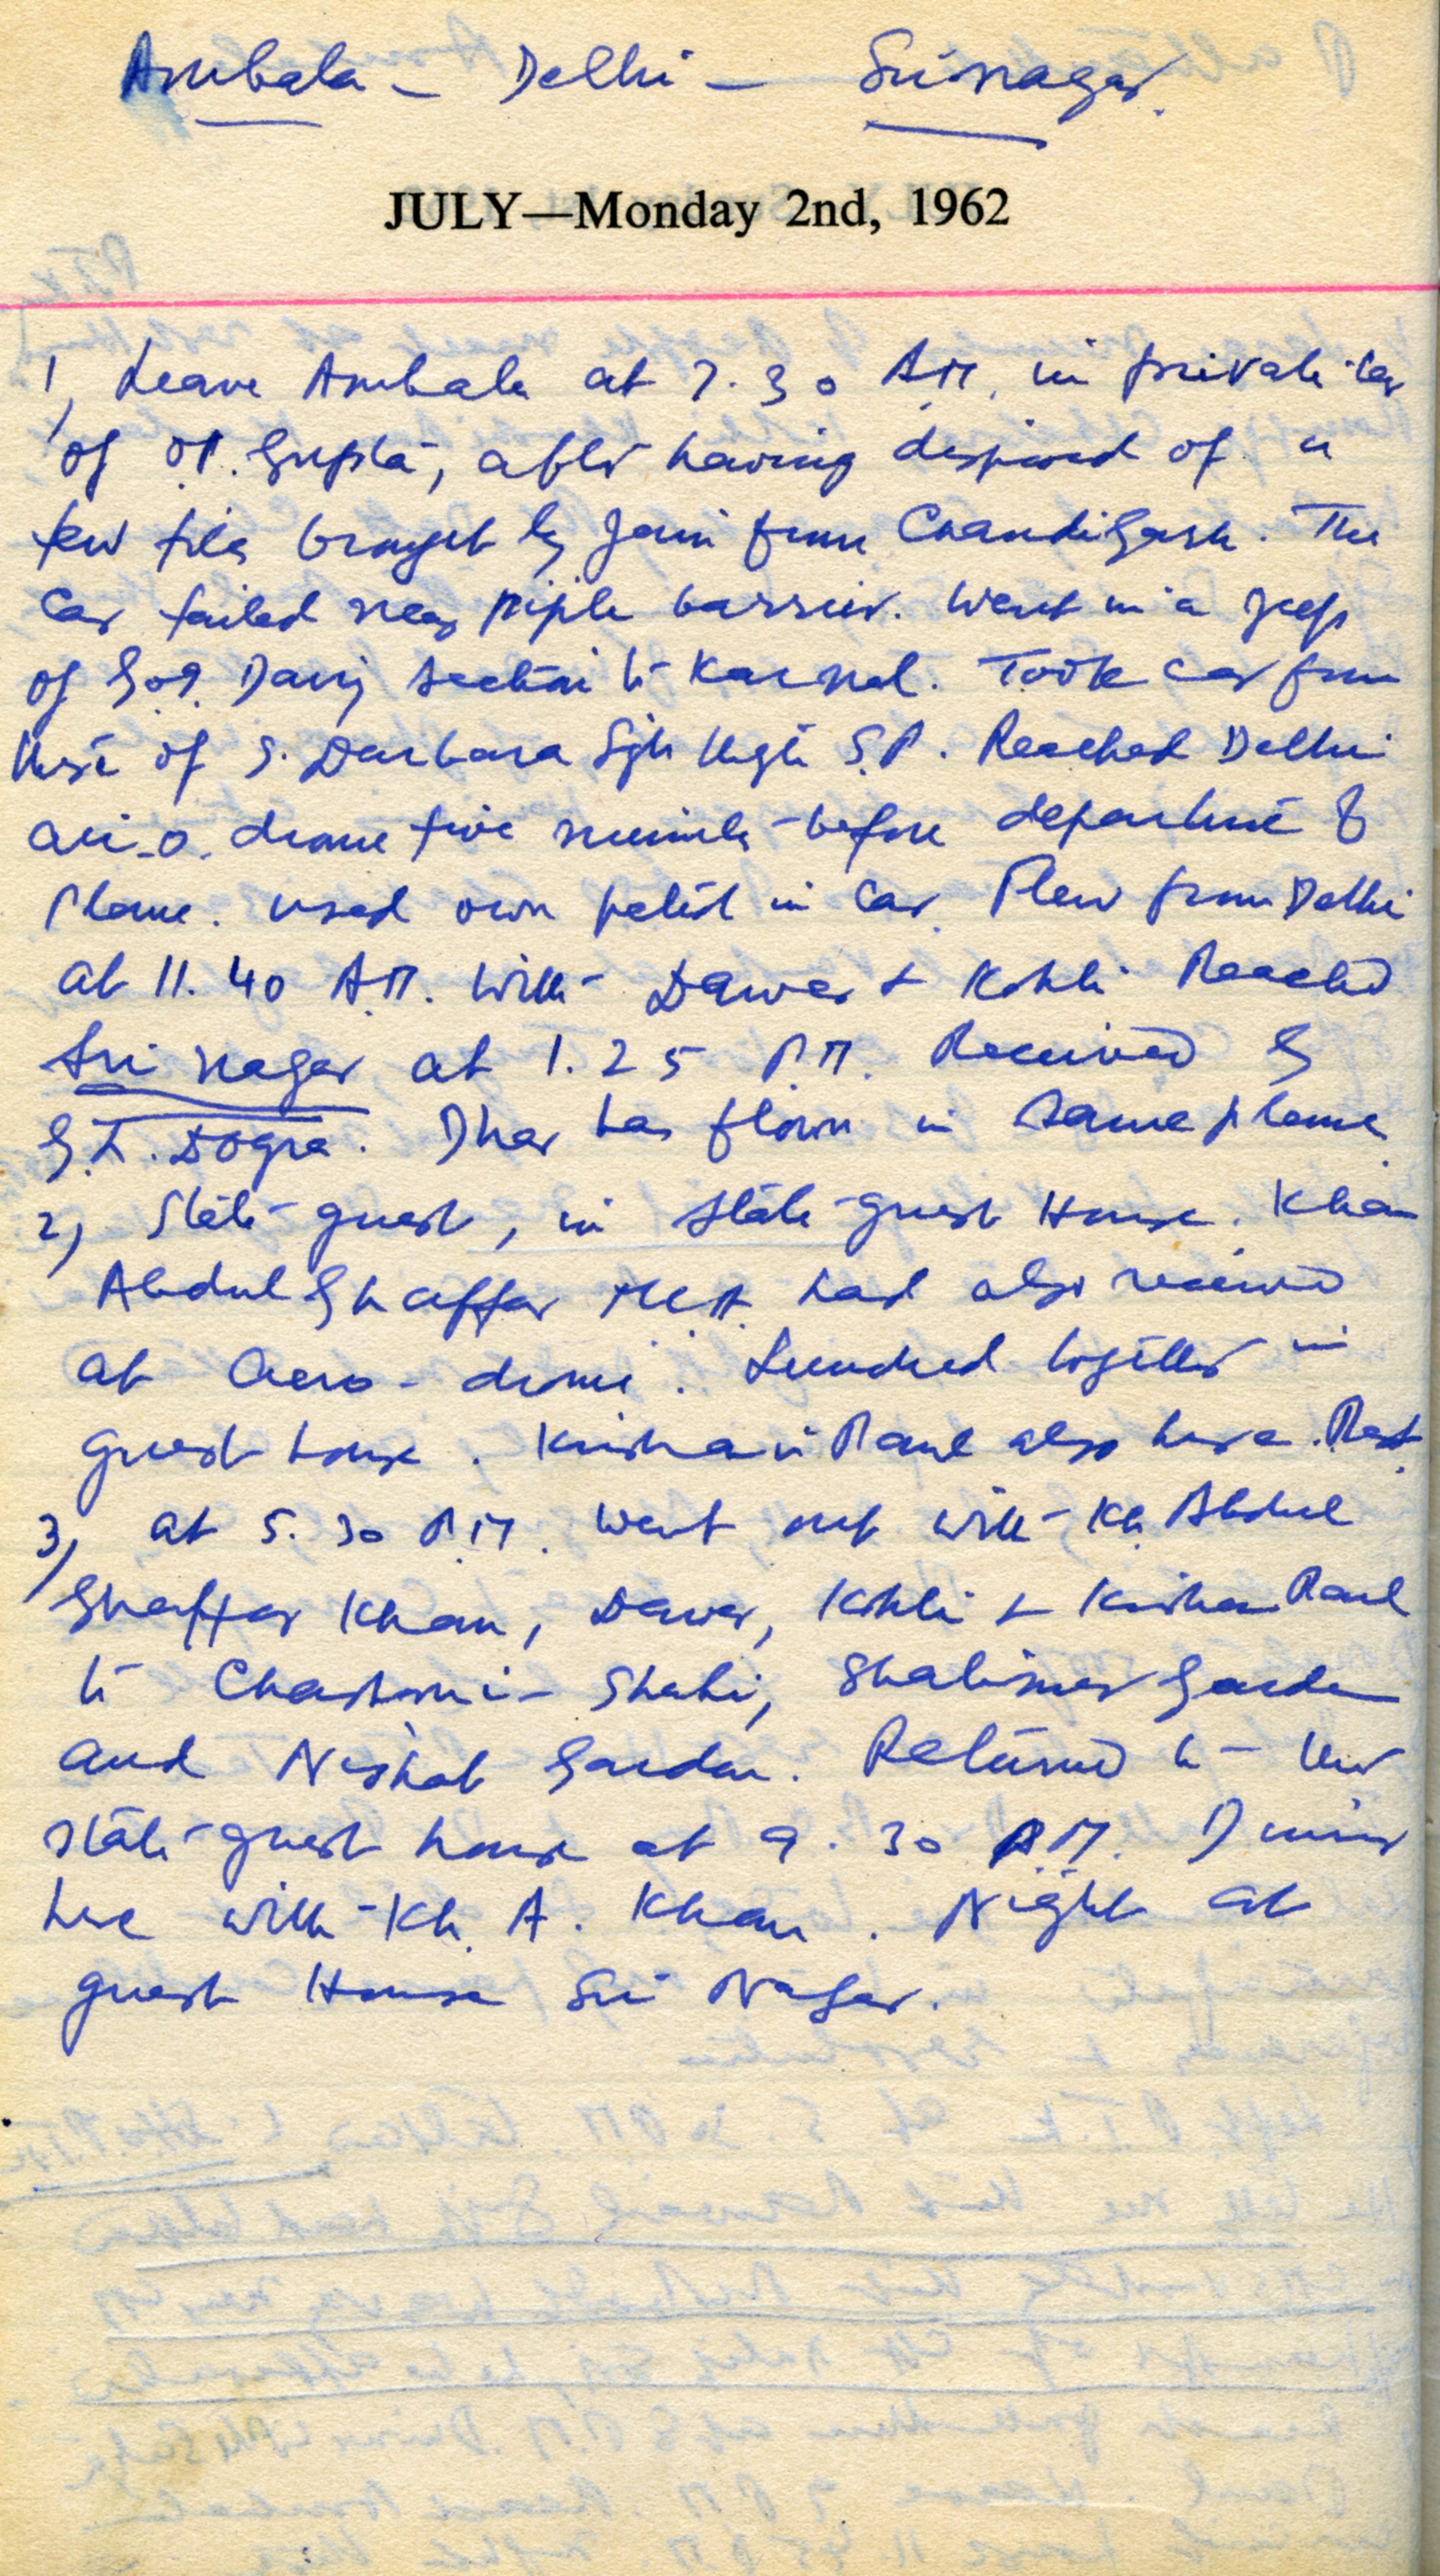 Ambala - Delhi - Srinagar.
JULY—Monday 2nd, 1962
1, Leave Ambala at 7.30 A.M. in private car
of O.P. Gupta, after having disposed of a
few files brought by Jain from Chandigarh. The
Car failed near Pipli barrier. Went in a Jeep
of Dairy Section to Karnal. Took car from
of S. Darbara Sgh S.P. Reached Delhi
air-o-drome five minutes before departure of
Plane. Used own petrol in Car. Flew from Delhi
at 11.40 A.M. with Dawer & Kohli Reached
Sri nagar at 1.25 P.M. Received by
Dogra. Dhar has flown in same plane.
2, State guest, in State guest House. Khan
Abdul Ghaffar had also received
at aero-drome. Lunched together in
guest house. Krishan Paul also here. Rest.
3, at 5.30 P.M. Went out with Kh. Abdul
Ghaffar Khan, Dawer, Kohli & Krishan Paul
to Chashma-i-Shahi, Shalimar Garden
and Nishat Garden. Returned to
State guest house at 9.30 P.M. Dinner
here with Kh. A. Khan. Night at
guest House Sri Nagar.